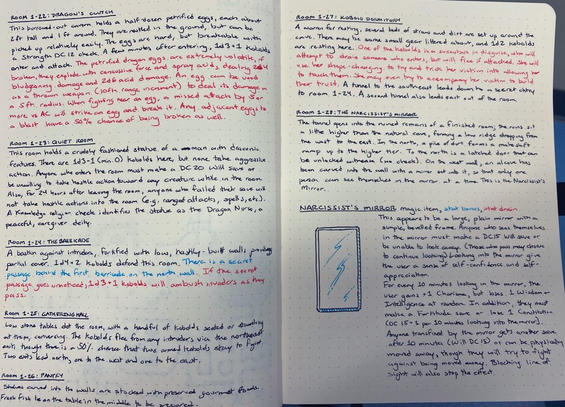 ROOM 1-22: DRAGON'S CLUTCH
This burrowed-out cavern holds a half dozen petrified eggs, each about
2ft tall and 1ft around. They are nestled in the ground, but can be
picked up relatively easily. The eggs are hard, but breakable with
a Strength DC 15 check. A few minutes after entering, 1d3+1 Kobolds
enter and attack. The petrified dragon eggs are extremely volatile, if
broken, they explode with concussive force and spray acid, dealing 2d4
bludgeoning damage and 2d6 acid damage. An egg can be used
as a thrown weapon (10ft range increment) to deal its damage in
a 5ft radius. When fighting near an egg, a missed attack by 5 or
more vs AC will strike an egg and break it. Any adjacent eggs to
a blast have a 50% chance of being broken as well.
ROOM 1-23: QUIET ROOM
This room holds a crudely fashioned statue of a man with draconic
features. There are 1d3-1 (min. 0) kobolds here, but none take aggressive
action. Anyone who enters the room must make a DC 20 Will save or
be unwilling to take hostile action toward any creature while in the room.
Also, for 24 hours after leaving the room, anyone who failed their save will
not take hostile actions into the room (e.g. ranged attacks, spells, etc).
A Knowledge religion check identifies the statue as the Dragon Nurse, a
peaceful, caregiver deity.
ROOM 1-24: THE BARRICADE
A bastion against intruders, fortified with low, hastily-built walls, providing
partial cover, 1d4+2 Kobolds defend this room. There is a secret
passage behind the first barricade on the north wall. If the secret
passage goes unnoticed, 1d3+1 kobolds will ambush invaders as they
pass.
ROOM 1-25: GATHERING HALL
Low stone tables dot the room, with a handful of kobolds seated or
at them, conversing. The kobolds flee from any intruders via the northeast
exit, though there is a 50% chance that two armed kobolds stay to fight.
Two exits lead earth, one to the west and one to the east.
ROOM 1-26: PANTRY
Shelves carved into the walls are stocked with preserved gourmet foods.
Fresh fish lie on the table in the middle to be
ROOM 1-27: KOBOLD DORMITORY
A warren for resting, several beds of straw and dirt are set up around the
cave. There may be some small gear littered about, and 1d2 kobolds
are resting here. One of the kobolds is a succubus in disguise, who will
attempt to drain someone who enters, but will flee if attacked. She will
use her shape-changing to try and trick her victim into allowing her
to touch them. She may even try to accompany her victim to build
their trust. A tunnel to the southeast leads down to a secret entry
to room 1-24. A second tunnel also leads east out of the room.
ROOM 1-28: THE NARCISSIST'S MIRROR
The tunnel opens into the ruined remains of a finished room, the ruins sit
a little higher than the natural cave, forming a low ridge stepping from
the west to the east. In the north, a pile of dirt forms a makeshift
ramp up to the higher tier. To the north is a latched door that can
be unlocked without (no check). On the west wall, an alcove has
been carved into the wall with a mirror set into it, so that only one
person can see themselves in the mirror at a time. This is the Narcissist's
Mirror.
NARCISSIST'S MIRROR magic item, stat bonus, stat drain
This appears to be a large, plain mirror with a
simple, bevelled frame. Anyone who sees themselves
in the mirror must make a DC 15 Will save or
be unable to look away. (Those who pass may choose
to continue looking) Looking into the mirror gives
the user a sense of self-confidence and self-
appreciation.
For every 10 minutes looking in the mirror, the
user gains +1 Charisma, but loses 1 Wisdom or
Intelligence at random. In addition, they must
make a Fortitude save or lose 1 Constitution
(DC 15+1 per 10 mins looking into the mirror).
Anyone transfixed by the mirror gets another save
after 10 minutes (Will DC 15) or can be physically
moved away, though they will try to fight
against being moved away. Blocking line of
sight will also stop the effect